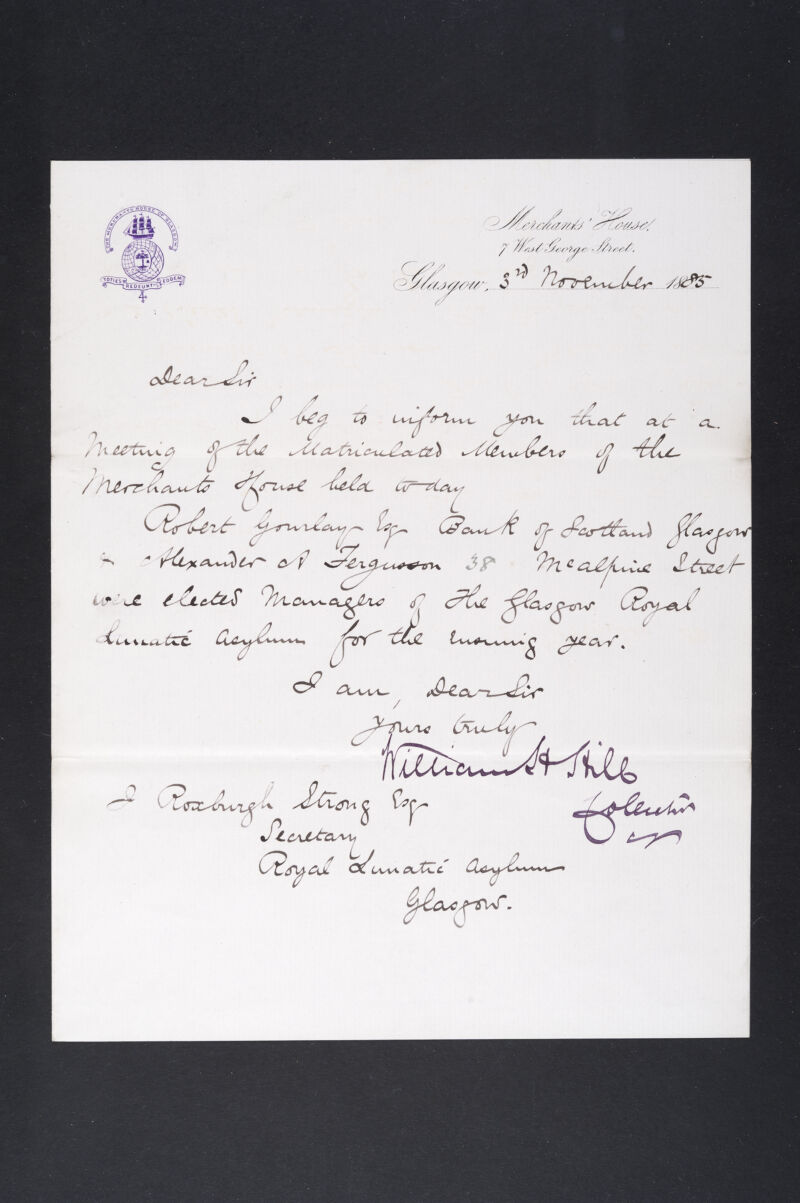 THE MERCHANTS HOUSE OF GLASGOW
TOTIES REDEUNT EODEM
Merchants' House,
7 West George Street.
Glasgow, 3rd November 1885
Dear Sir
I beg to inform you that at a
Meeting of the Matriculated Members of the
Merchants House held to-day
Robert Gourlay Esq Bank of Scotland Glasgow
& Alexander A Fergusson 38 McAlpine Street
were elected Managers of The Glasgow Royal
Lunatic Asylum for the ensuing year.
I am, Dear Sir
Yours truly
William H Hill
J Roxburgh Strong Esq
Secretary
Royal Lunatic Asylum
Glasgow.